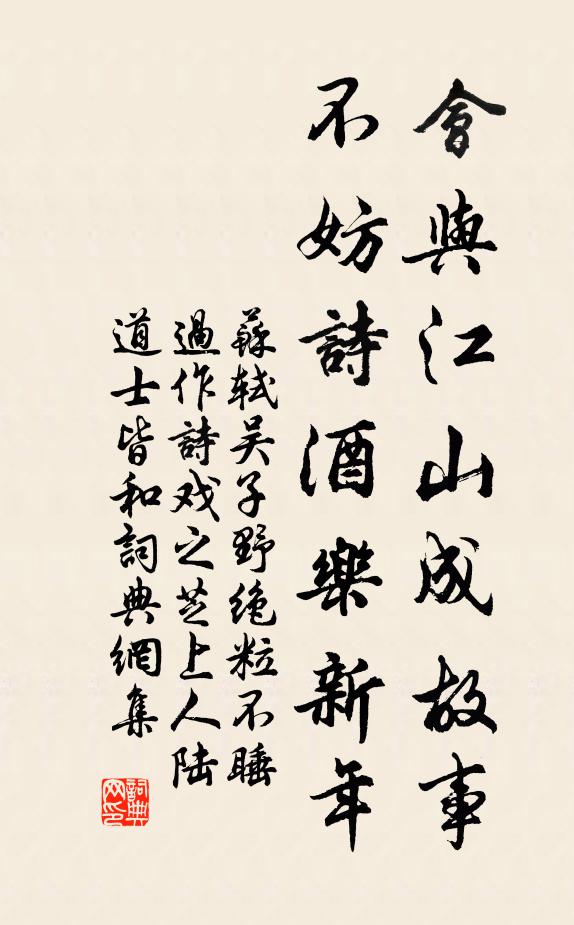 會與江山成故事
不妨詩酒樂新年
蘇軾吴子野绝粒不睡
過作詩戏之芝上人陆
道士皆和詞典網集
詞典网印